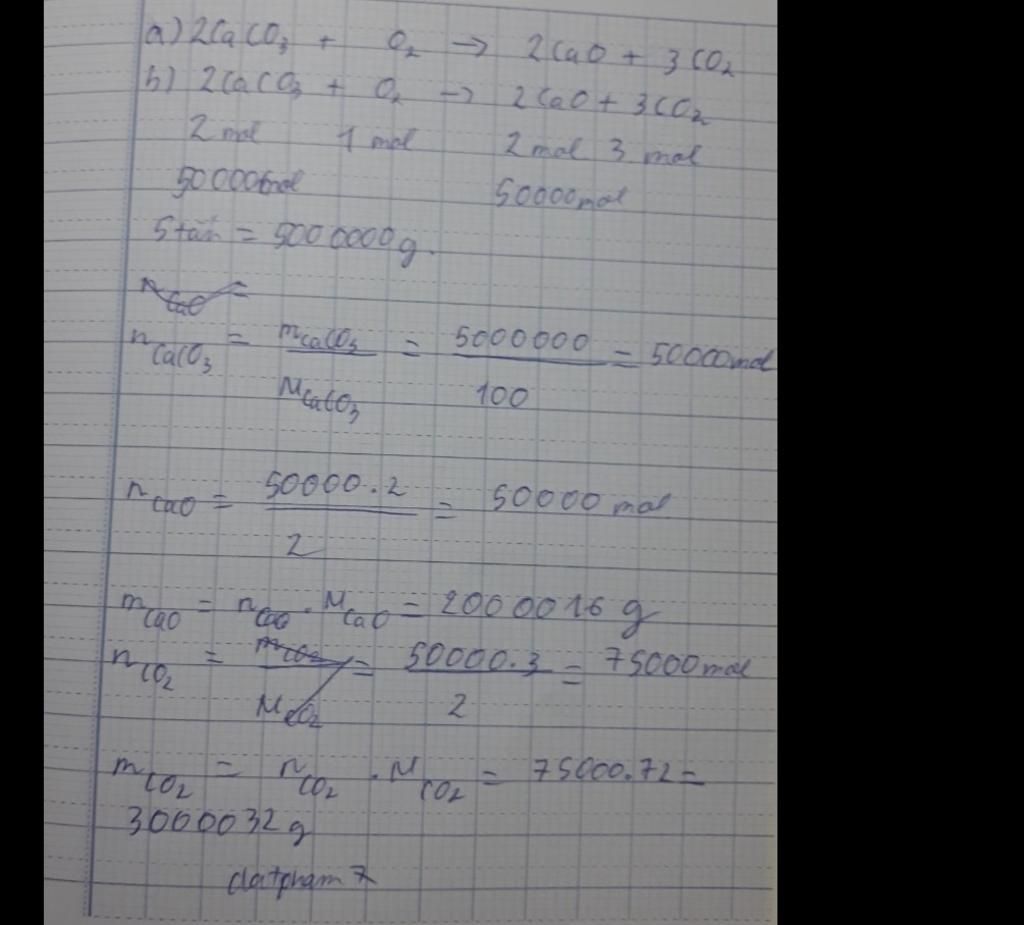 a) 2CaCO₃ + O₂ → 2CaO + 3CO₂
b) 2CaCO₃ + O₂ → 2CaO + 3CO₂
2 mol 1 mol 2 mol 3 mol
50000mol 50000mol
5 tấn = 5000000g.
n_CaO =
n_CaCO₃ = m_CaCO₃ / M_CaCO₃ = 5000000 / 100 = 50000mol
n_CaO = 50000.2 / 2 = 50000 mol
m_CaO = n_CaO . M_CaO = 2000016 g
n_CO₂ = m_CO₂ / M_CO₂ = 50000.3 / 2 = 75000mol
m_CO₂ = n_CO₂ . M_CO₂ = 75000.72 =
3000032g
datpham7